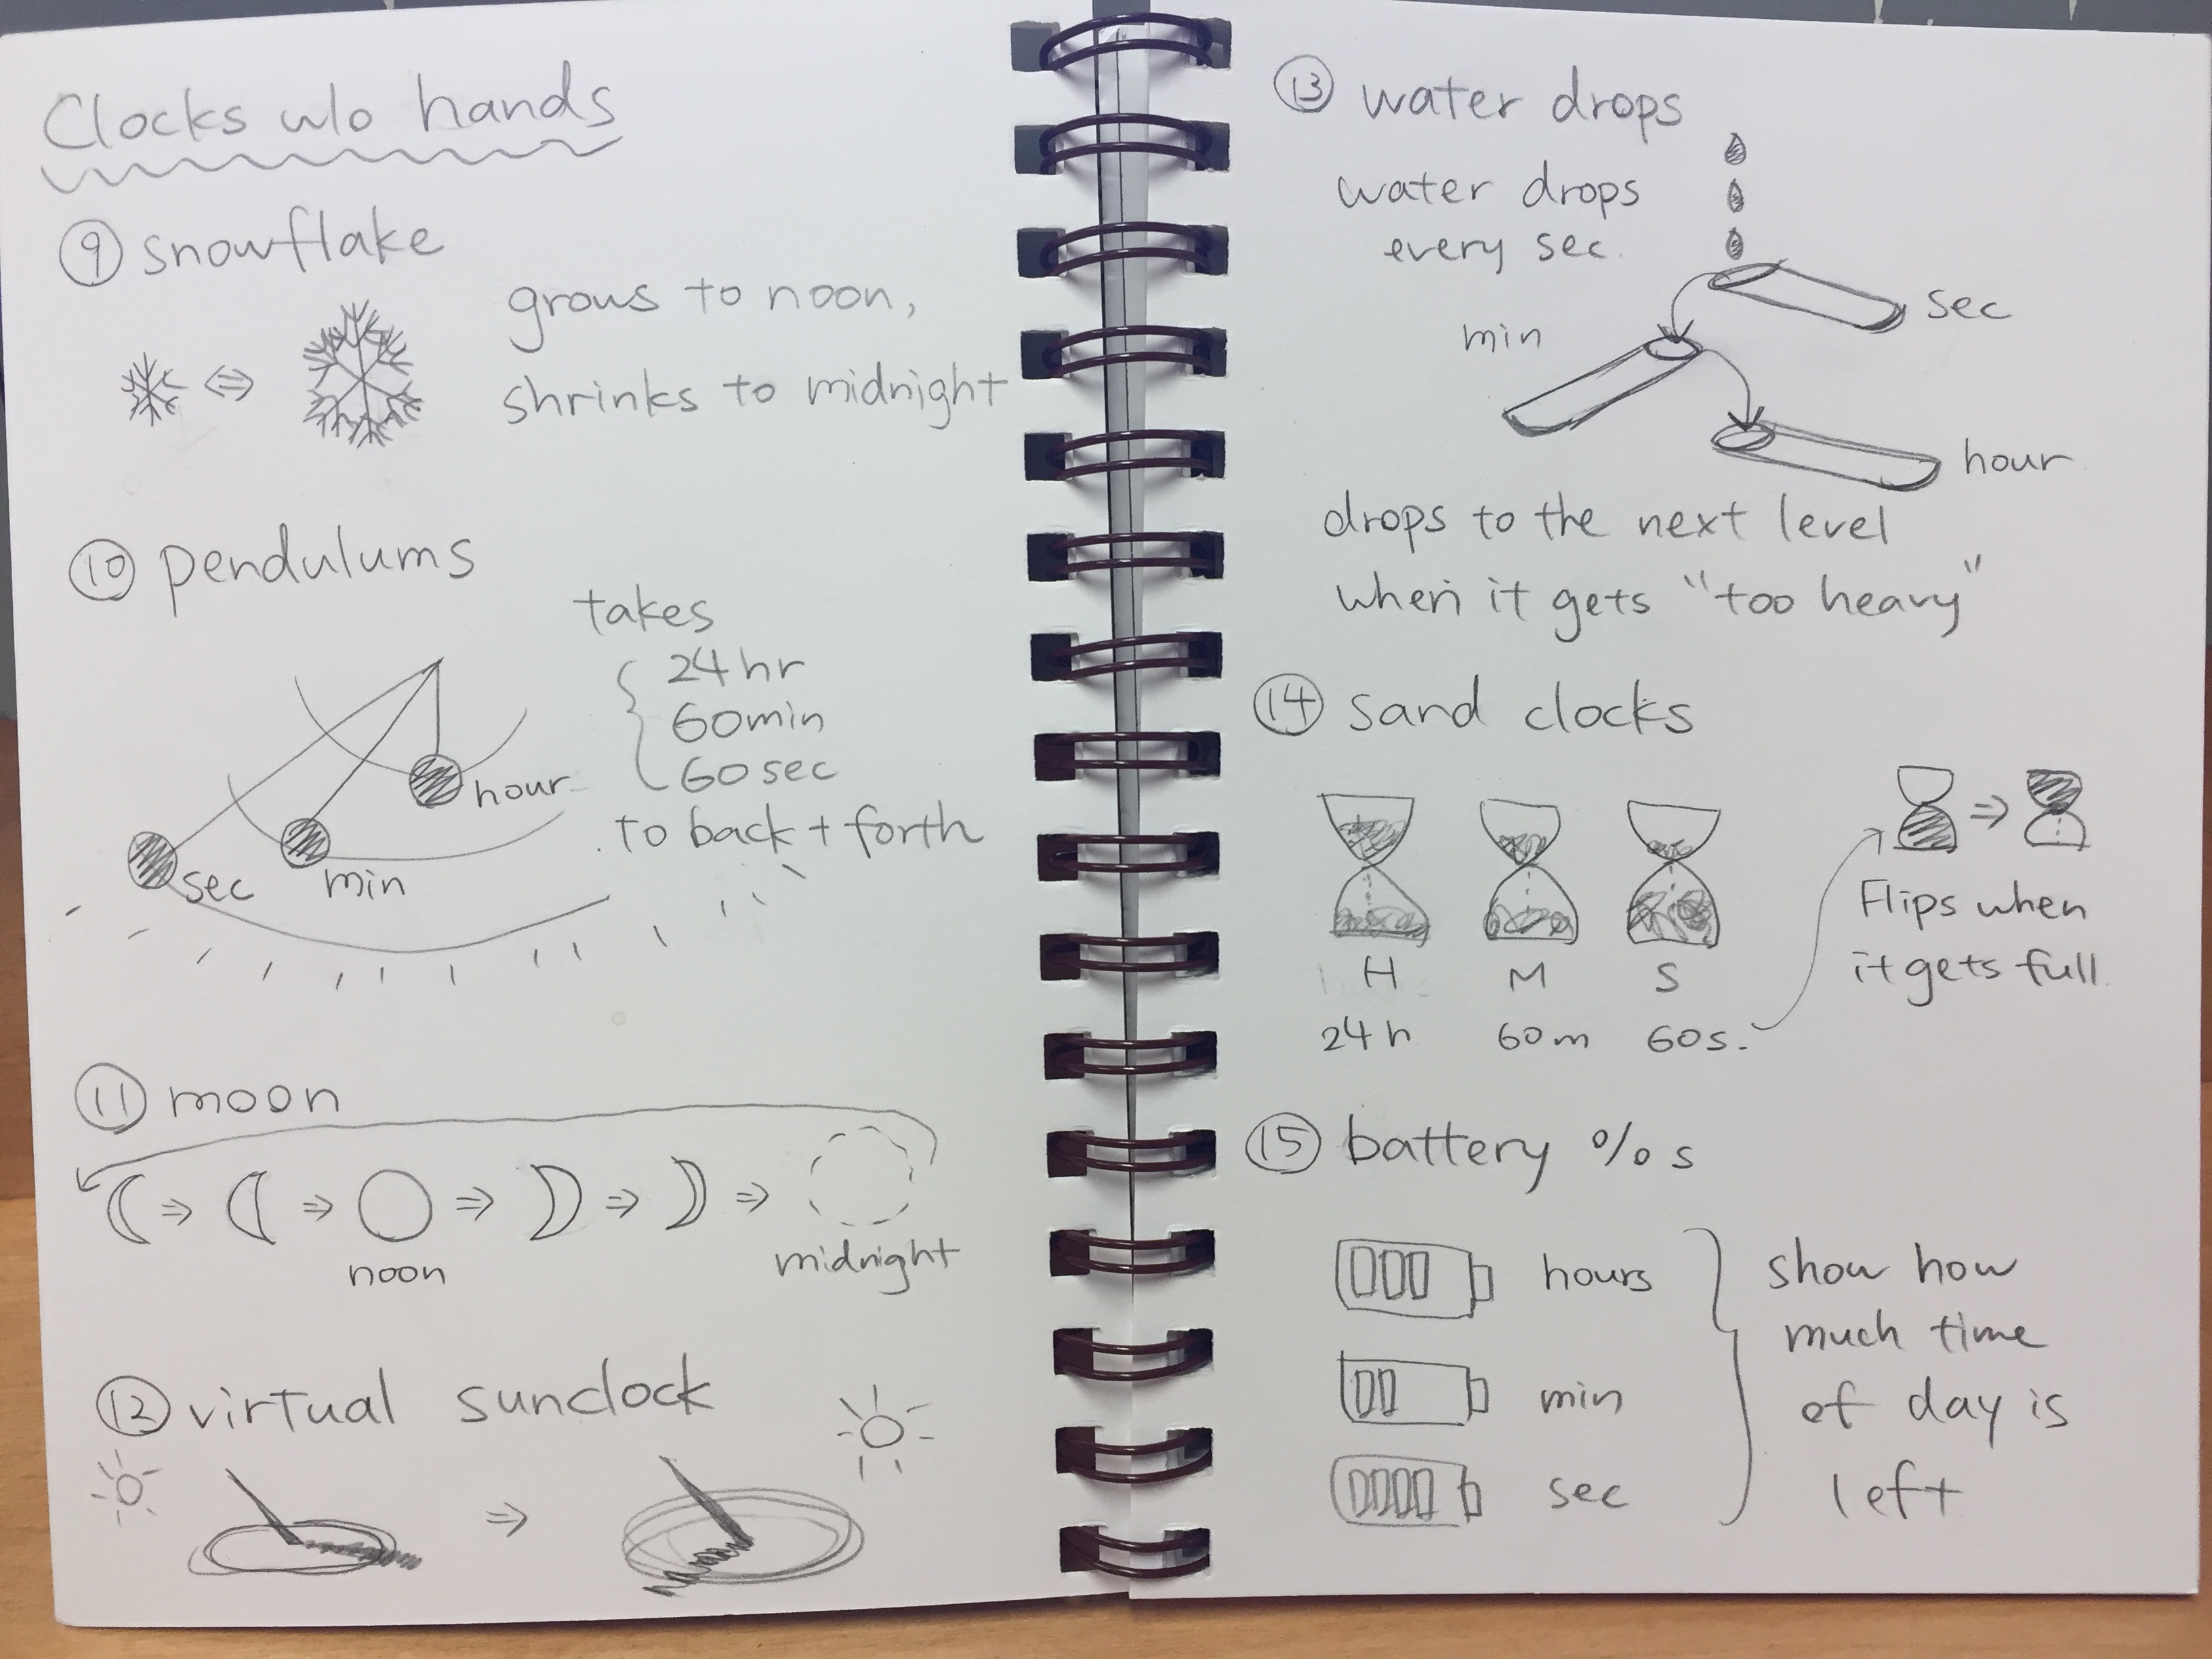 Clocks w/o hands
⑨ snowflake
grows to noon,
shrinks to midnight
⑩ pendulums
takes
24 hr
60 min
60 sec
to back + forth
hour
min
sec
⑪ moon
noon
midnight
⑫ virtual sunclock
⑬ water drops
water drops
every sec.
sec
min
hour
drops to the next level
when it gets "too heavy"
⑭ sand clocks
H M S
24 h 60 m 60 s.
Flips when
it gets full.
⑮ battery %s
hours
min
sec
show how
much time
of day is
left